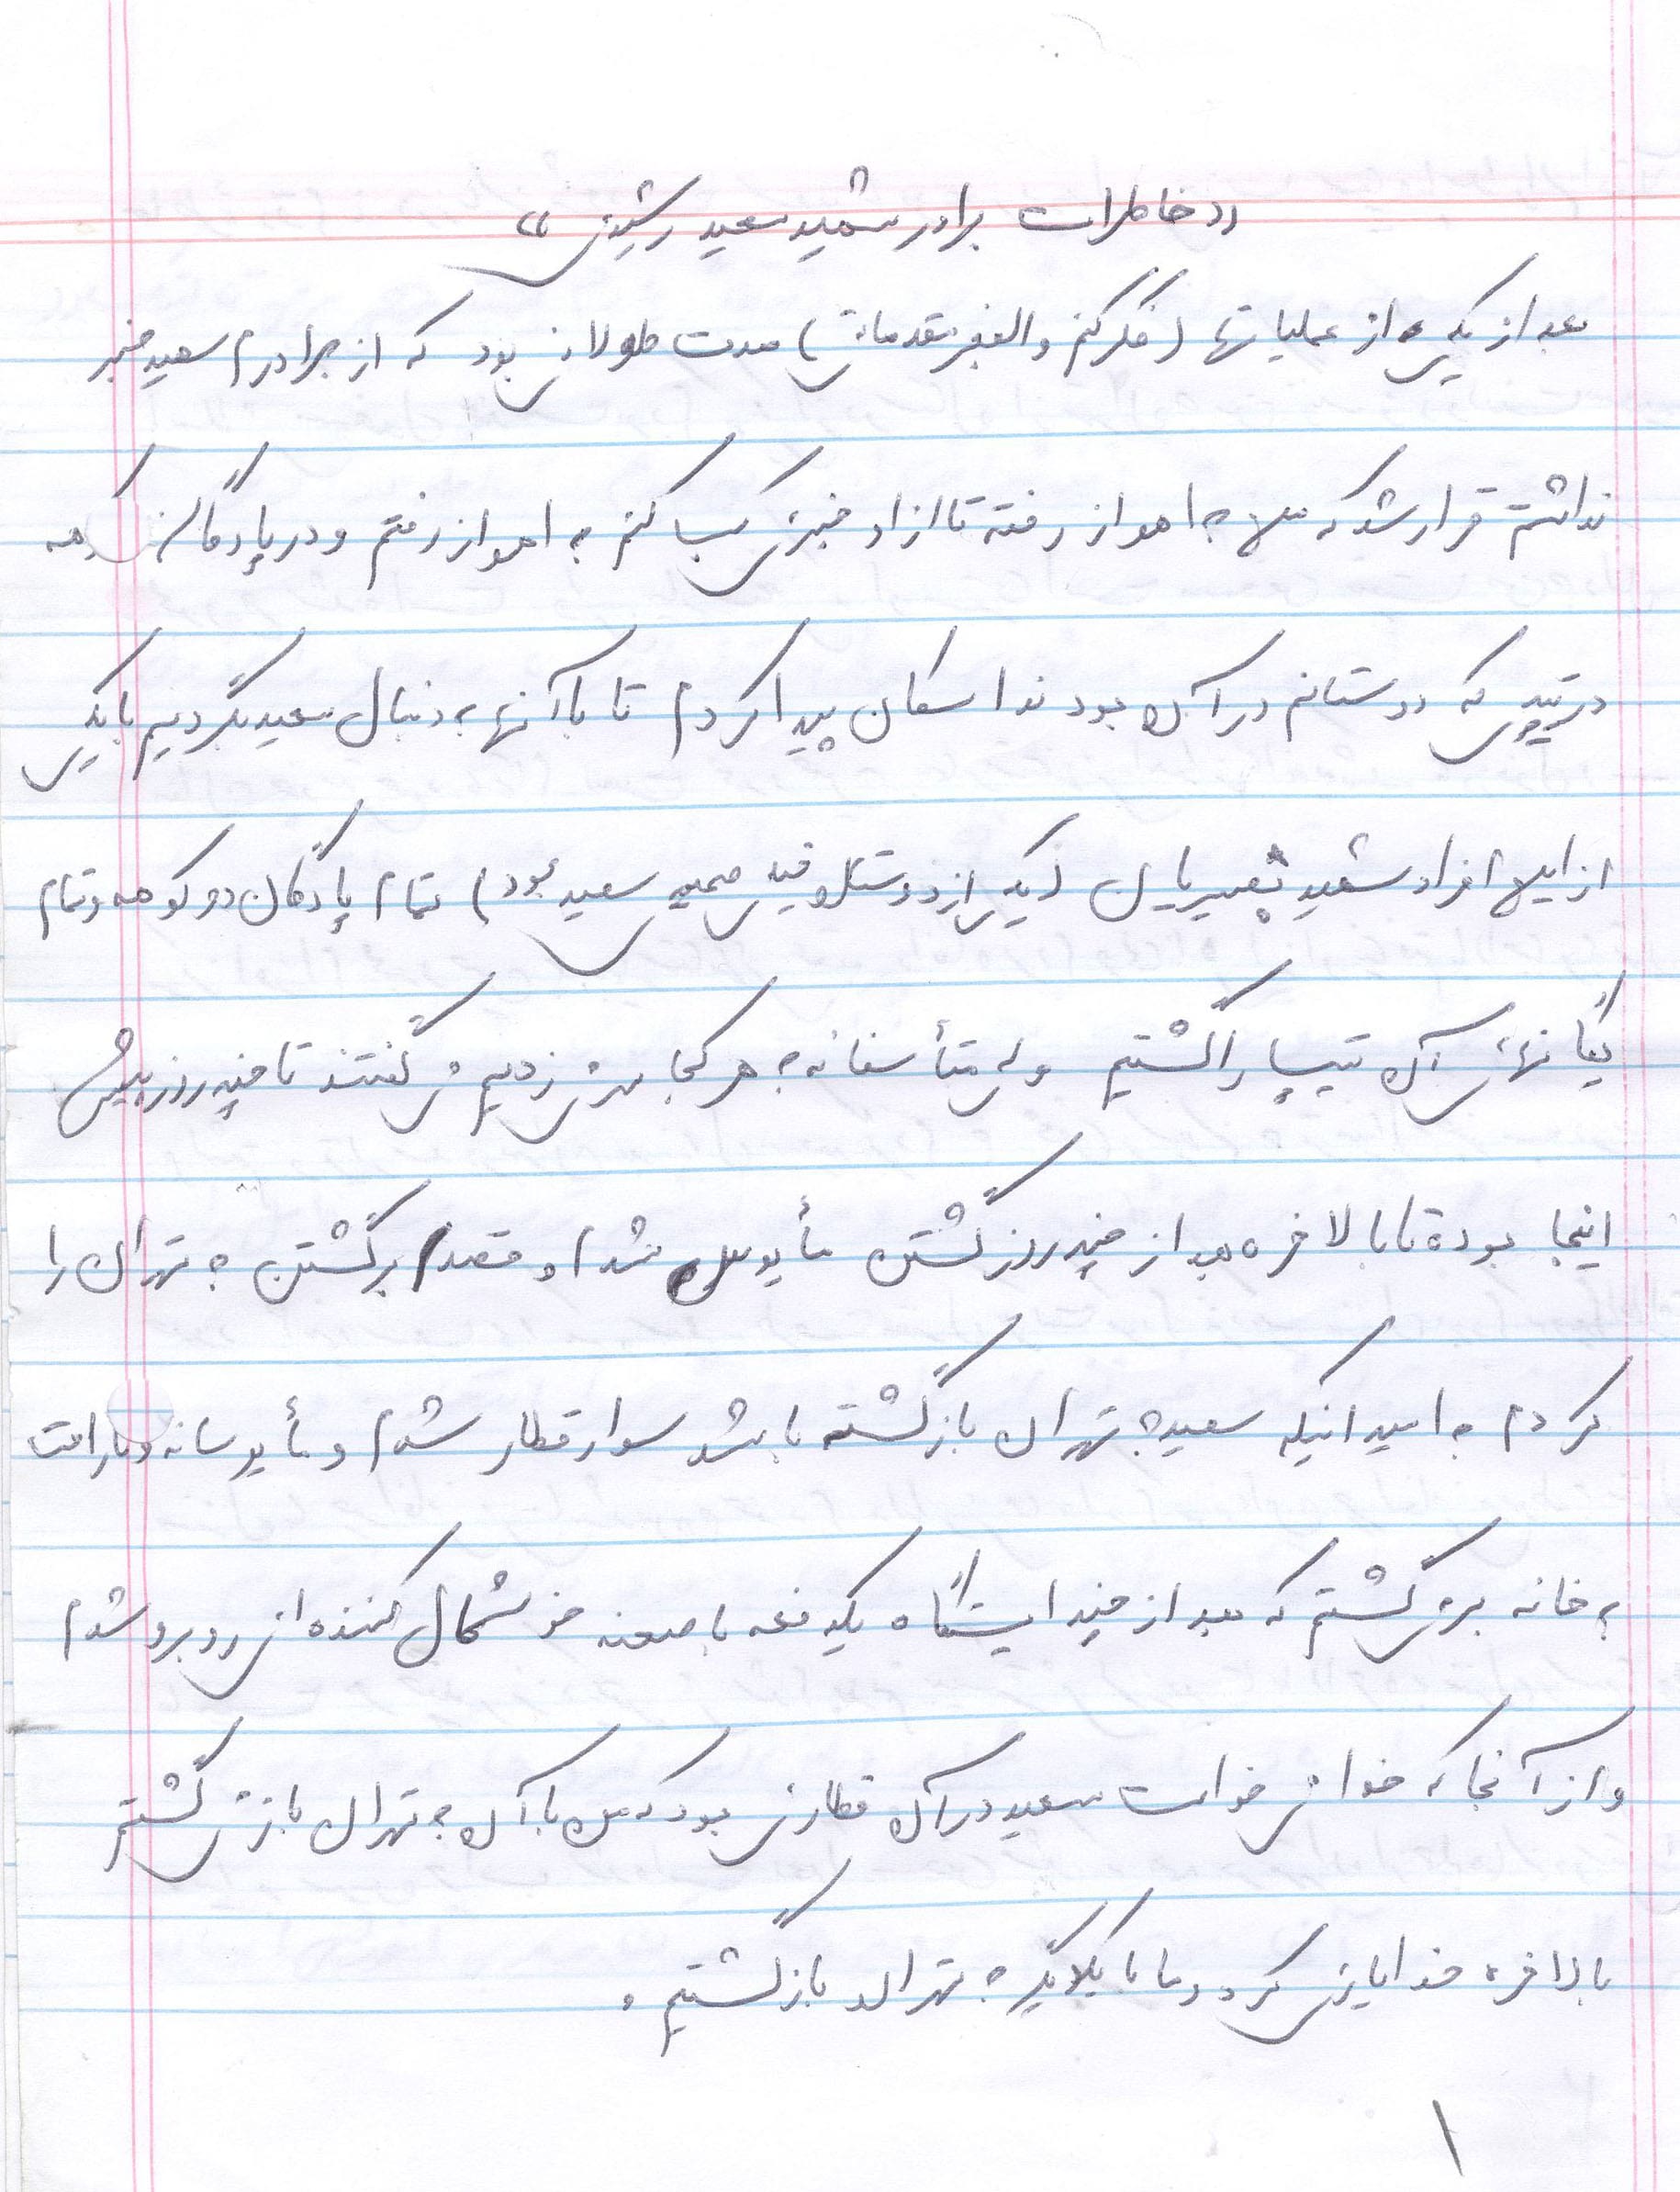 «خاطرات برادر شهید سعید رشیدی»
بعد از یکی از عملیاتها (فکر کنم والفجر مقدماتی) مدت طولانی بود که از برادرم سعید خبر
نداشتم قرار شد که من به اهواز رفته تا از او خبری کسب کنم به اهواز رفتم و در پادگان
در تیپی که دوستانم در آن بودند اسکان پیدا کردم تا با آنها به دنبال سعید بگردیم با یکی
از این افراد شهید نصیریان (یکی از دوستان صمیمی سعید بود) تمام پادگان دوکوهه و تمام
یگانهای آن تیپ را گشتیم ولی متأسفانه به هر کجا سر می زدیم می گفتند تا چند روز پیش
اینجا بوده تا بالاخره بعد از چند روز گشتن مأیوس شدم و قصد برگشتن به تهران را
کردم به امید اینکه سعید به تهران بازگشته باشد سوار قطار شدم و مأیوسانه و ناراحت
به خانه برمی گشتم که بعد از چند ایستگاه یکدفعه با صحنه خوشحال کننده ای روبرو شدم
و از آنجا که خدا می خواست سعید در آن قطاری بود که من با آن به تهران باز می گشتم
بالاخره خدا یاری کرد و ما با یکدیگر به تهران بازگشتیم.
۱